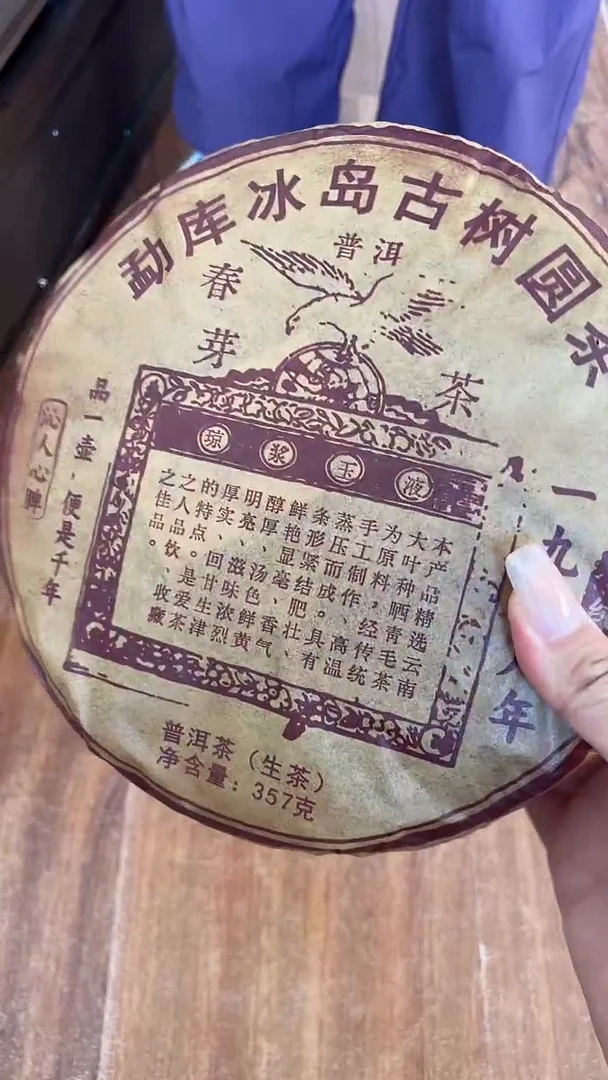 勐库冰岛古树圆茶
普洱
春芽
茶
琼浆玉液
本产品精选云南
大叶种晒青毛茶
为原料，经传统
手工制作、高温
蒸压而成。具有
条形紧结肥壮、
鲜艳显毫、香气
醇厚、汤色鲜黄
明亮、滋味浓烈
厚实、回甘生津
的特点。是爱茶
之人品饮、收藏
之佳品。
品一壶，便是千年
沁人心脾
一九
年
普洱茶（生茶）
净含量：357克